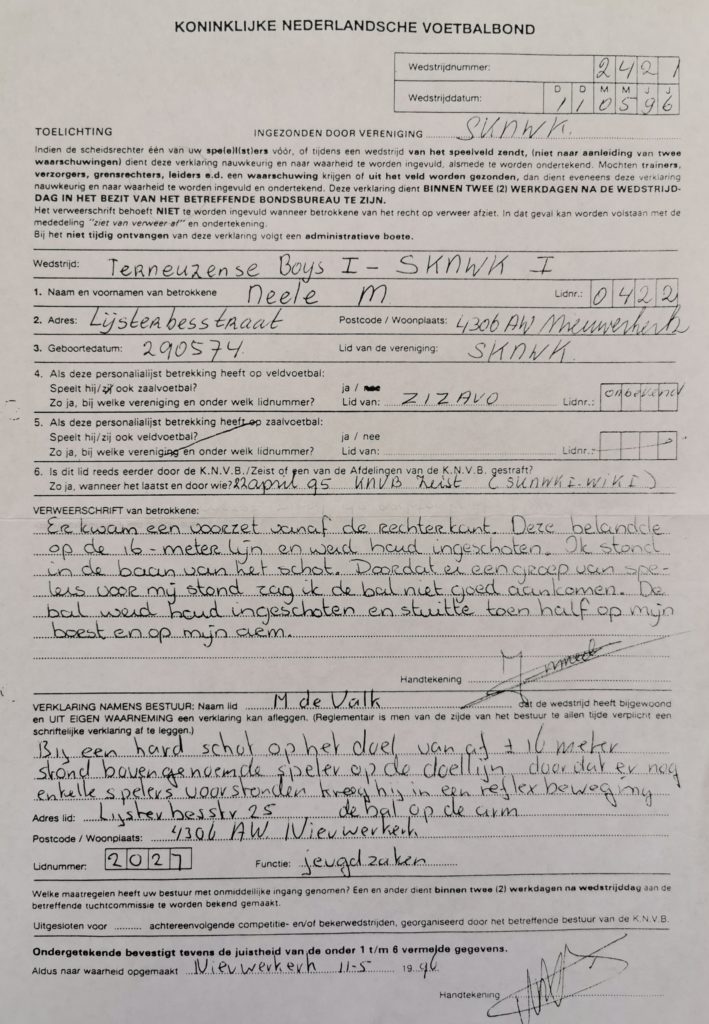 KONINKLIJKE NEDERLANDSCHE VOETBALBOND
Wedstrijdnummer: 2421
D D M M J J
Wedstrijddatum: 110596
TOELICHTING INGEZONDEN DOOR VERENIGING SKNWK.
Indien de scheidsrechter één van uw spe(e)l(st)ers vóór, of tijdens een wedstrijd van het speelveld zendt, (niet naar aanleiding van twee
waarschuwingen) dient deze verklaring nauwkeurig en naar waarheid te worden ingevuld, alsmede te worden ondertekend. Mochten trainers,
verzorgers, grensrechters, leiders e.d. een waarschuwing krijgen of uit het veld worden gezonden, dan dient eveneens deze verklaring
nauwkeurig en naar waarheid te worden ingevuld en ondertekend. Deze verklaring dient BINNEN TWEE (2) WERKDAGEN NA DE WEDSTRIJD-
DAG IN HET BEZIT VAN HET BETREFFENDE BONDSBUREAU TE ZIJN.
Het verweerschrift behoeft NIET te worden ingevuld wanneer betrokkene van het recht op verweer afziet. In dat geval kan worden volstaan met de
mededeling "ziet van verweer af" en ondertekening.
Bij het niet tijdig ontvangen van deze verklaring volgt een administratieve boete.
Wedstrijd: Terneuzense Boys I - SKNWK I
1. Naam en voornamen van betrokkene Neele M Lidnr.: 0422
2. Adres: Lijsterbesstraat Postcode / Woonplaats: 4306 AW Nieuwerkerk
3. Geboortedatum: 290574 Lid van de vereniging: SKNWK.
4. Als deze personalialijst betrekking heeft op veldvoetbal:
Speelt hij/zij ook zaalvoetbal? ja / nee
Zo ja, bij welke vereniging en onder welk lidnummer? Lid van: ZIZAVO Lidnr.: onbekend
5. Als deze personalialijst betrekking heeft op zaalvoetbal:
Speelt hij/zij ook veldvoetbal? ja / nee
Zo ja, bij welke vereniging en onder welk lidnummer? Lid van: Lidnr.:
6. Is dit lid reeds eerder door de K.N.V.B./Zeist of een van de Afdelingen van de K.N.V.B. gestraft?
Zo ja, wanneer het laatst en door wie? 22 april 95 KNVB Zeist (SKNWK I - WIK I)
VERWEERSCHRIFT van betrokkene:
Er kwam een voorzet vanaf de rechterkant. Deze belandde
op de 16-meter lijn en werd hard ingeschoten. Ik stond
in de baan van het schot. Doordat er een groep van spe-
lers voor mij stond zag ik de bal niet goed aankomen. De
bal werd hard ingeschoten en stuitte toen half op mijn
borst en op mijn arm.
Handtekening
VERKLARING NAMENS BESTUUR: Naam lid M de Valk dat de wedstrijd heeft bijgewoond
en UIT EIGEN WAARNEMING een verklaring kan afleggen. (Reglementair is men van de zijde van het bestuur te allen tijde verplicht een
schriftelijke verklaring af te leggen.)
Bij een hard schot op het doel van af ± 16 meter
stond bovengenoemde speler op de doellijn doordat er nog
enkelle spelers voorstonden kreeg hij in een reflex beweging
Adres lid: Lijsterbesstr 25 de bal op de arm
Postcode / Woonplaats: 4306 AW Nieuwerkerk
Lidnummer: 2027 Functie: jeugdzaken
Welke maatregelen heeft uw bestuur met onmiddellijke ingang genomen? Een en ander dient binnen twee (2) werkdagen na wedstrijddag aan de
betreffende tuchtcommissie te worden bekend gemaakt.
Uitgesloten voor achtereenvolgende competitie- en/of bekerwedstrijden, georganiseerd door het betreffende bestuur van de K.N.V.B.
Ondergetekende bevestigt tevens de juistheid van de onder 1 t/m 6 vermelde gegevens.
Aldus naar waarheid opgemaakt Nieuwerkerk 11-5 1996
Handtekening